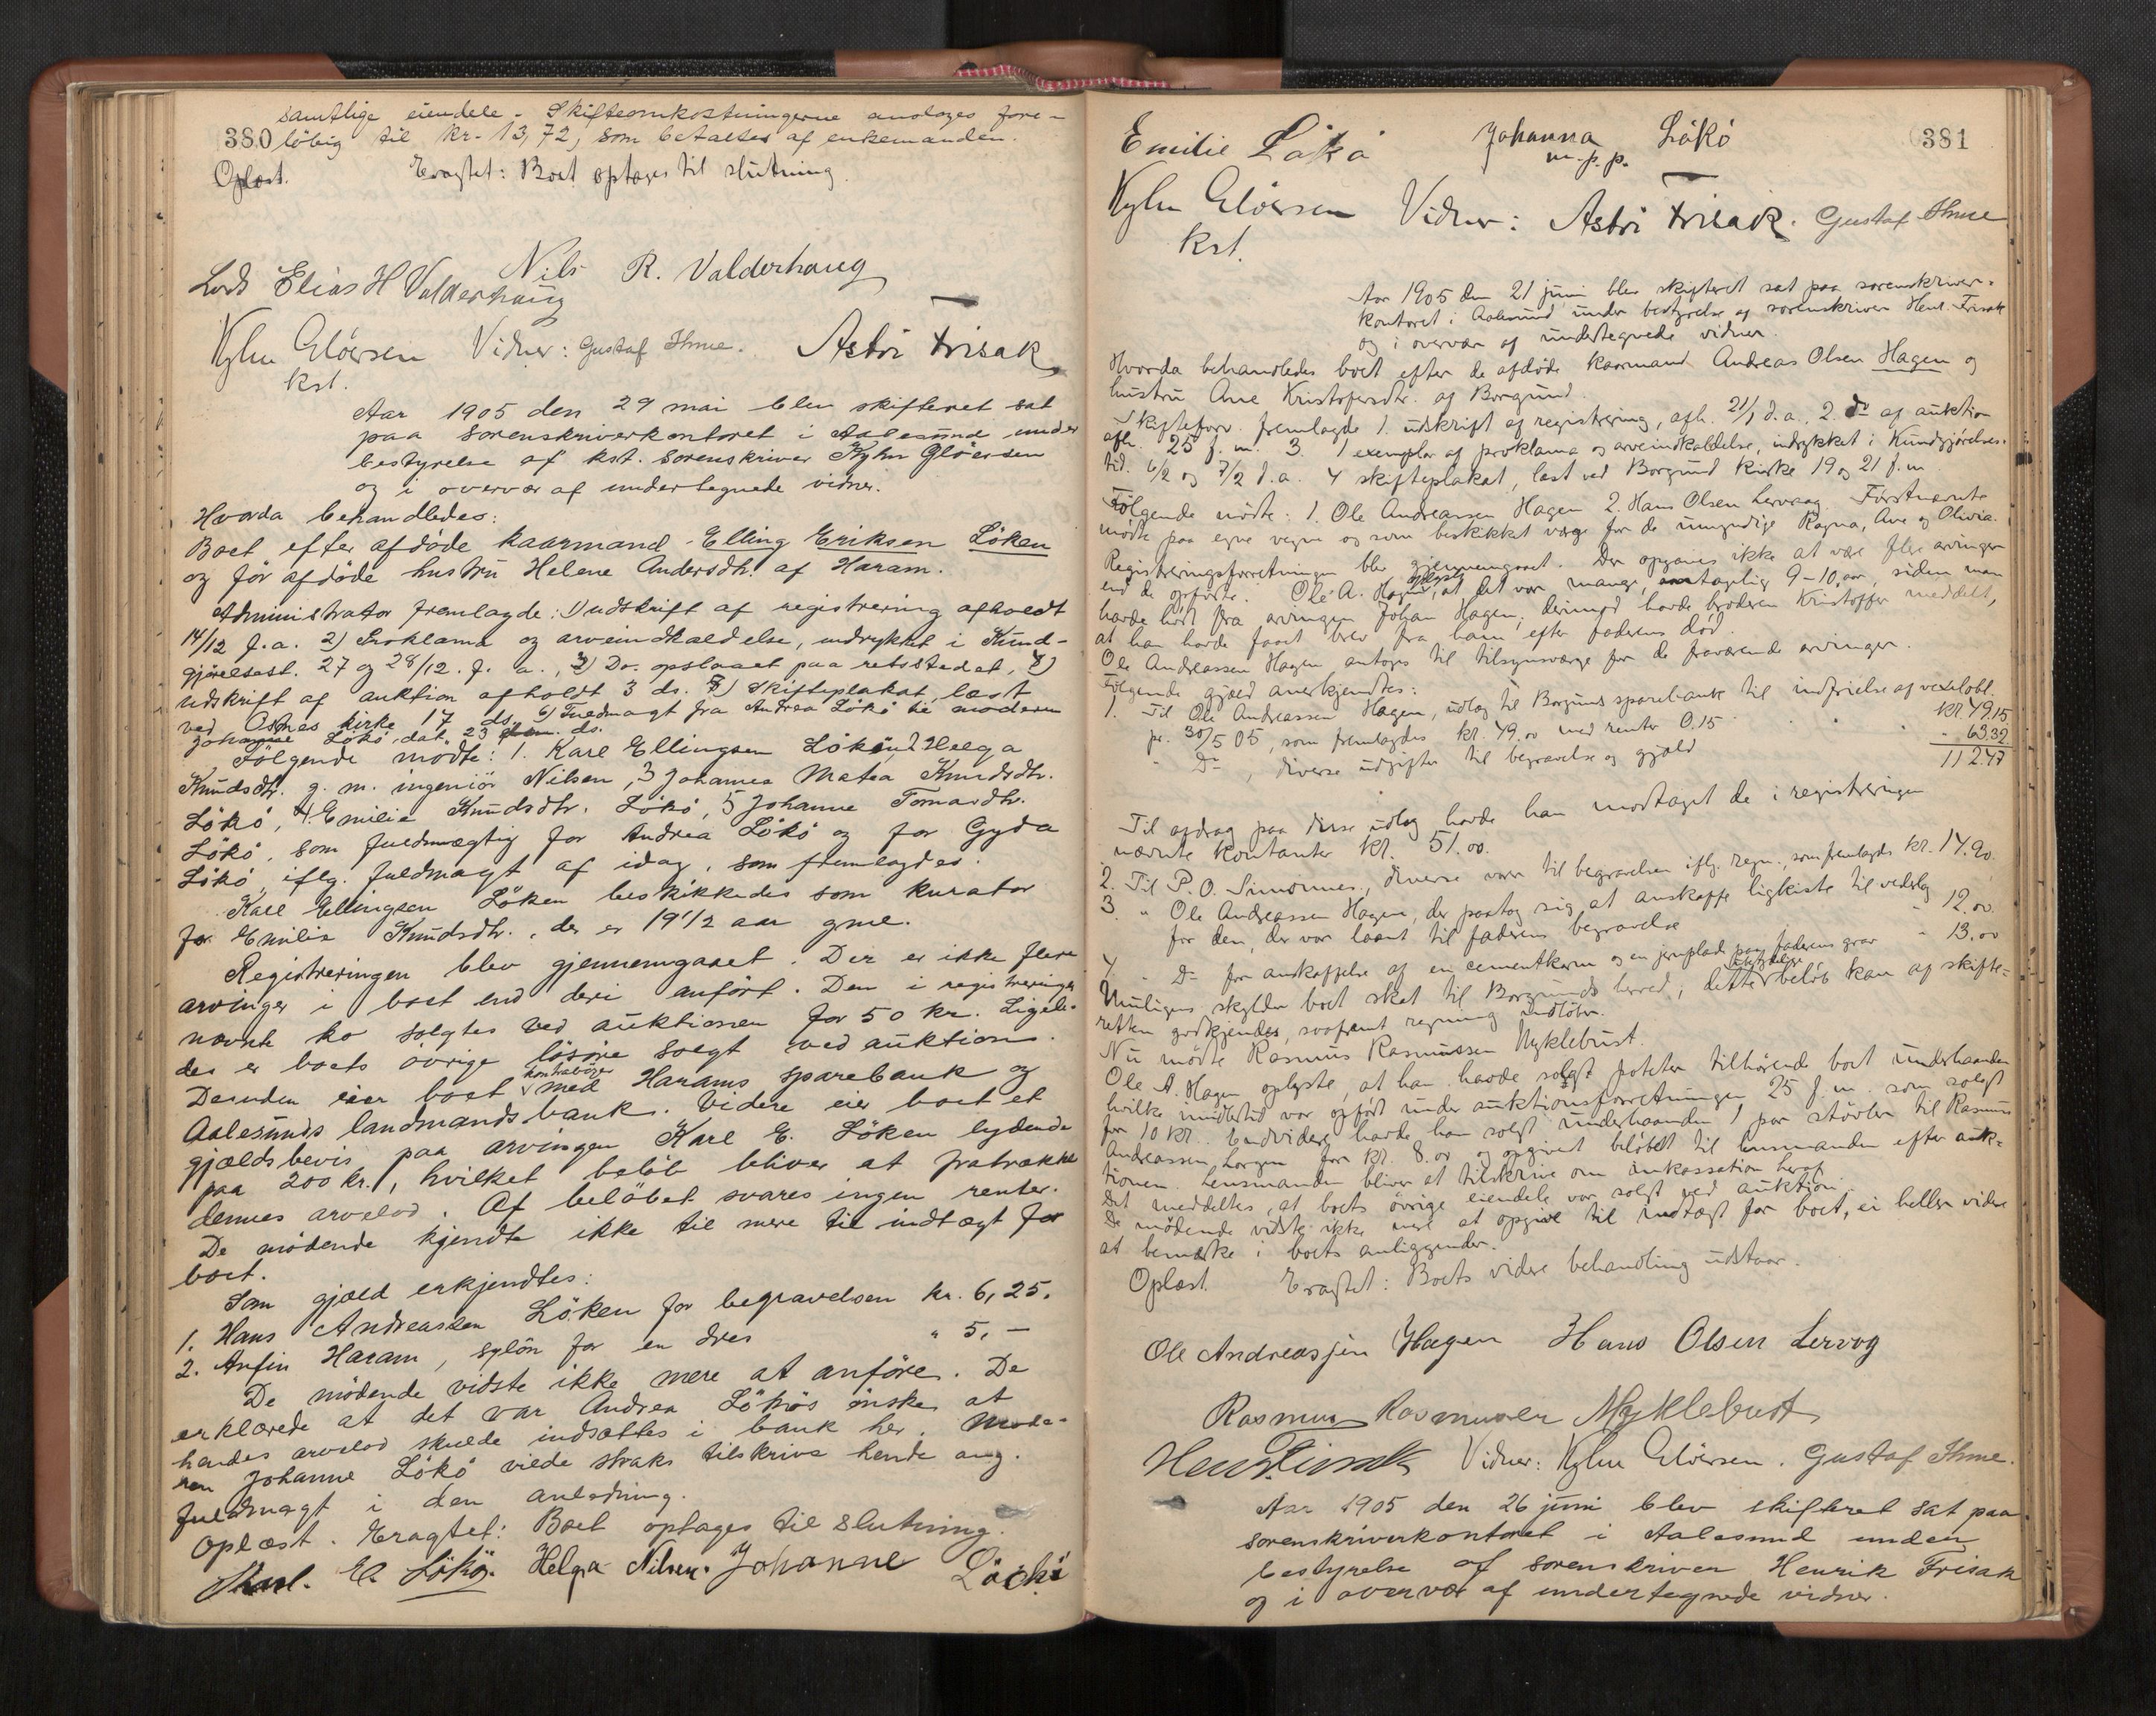 samtlige eiendele. Skifteomkostningerne antoges fore-
380 löbig til kr. 13,72, som betaltes af enkemanden.
Oplæst. Eragtet: Boet optages til slutning.
Nils R. Valderhaug
Lars Elias H Valderhaug
Kyhn Gløersen Vidner: Gustaf Ihme. Astri Frisak
kst.
Aar 1905 den 29 mai blev skifteret sat
paa sorenskriverkontoret i Aalesund under
bestyrelse af kst. sorenskriver Kyhn Gløersen
og i overvær af undertegnede vidner.
Hvorda behandledes:
Boet efter afdöde kaarmand Elling Eriksen Löken
og för afdöde hustru Helene Andersdtr. af Haram.
Administrator fremlagde: 1) udskrift af registrering afholdt
14/12 f.a. 2) Proklama og arveindkaldelse, indrykket i Kund-
gjörelsest. 27 og 28/12. f. a., 3) Do. opslaaet paa retsstedet, 4)
udskrift af auktion afholdt 3 ds. 5) Skifteplakat læst
ved Østnes kirke 17 ds. 6) Fuldmagt fra Andrea Lökö til moderen
Johanne Lökö, dat. 23 ds.
Fölgende mödte: 1. Karl Ellingsen Löken, 2 Helga
Knudsdtr. g. m. ingeniör Nilsen, 3 Johanna Matea Knudsdtr.
Lökö, 4 Emilie Knudsdtr. Lökö, 5 Johanne Tomasdtr.
Lökö, som fuldmægtig for Andrea Lökö og for Gyda
Lökö, iflg. fuldmagt af idag, som fremlagdes.
Karl Ellingsen Löken beskikkedes som kurator
for Emilie Knudsdtr., der er 19 1/2 aar gml.
Registreringen blev gjennemgaaet. Der er ikke flere
arvinger i boet end deri anfört. Den i registreringen
nævnte ko solgtes ved auktionen for 50 kr. Ligele-
des er boets övrige lösöre solgt ved auktion.
Desuden eier boet kontrabøger med Harams sparebank og
Aalesunds landmandsbank. Videre eier boet et
gjældsbevis paa arvingen Karl E. Löken lydende
paa 200 kr., hvilket belöb bliver at fratrække
dennes arvelod. Af belöbet svares ingen renter.
De mödende kjendte ikke til mere til indtægt for
boet.
Som gjæld erkjendtes:
1. Hans Andreassen Löken for begravelsen kr. 6,25.
2. Anfin Haram, sylön for en dres " 5,-
De mödende vidste ikke mere at anföre. De
erklærede at det var Andrea Lökös önske at
hendes arvelod skulde indsættes i bank her. Mode-
ren Johanne Lökö vilde straks tilskrive hende ang.
fuldmagt i den anledning.
Oplæst. Eragtet: Boet optages til slutning.
Karl. E. Lökö. Helga Nilsen. Johanne Löckö
Emilie Løkø Johanna Lökö 381
m. p. p.
Kyhn Gløersen Vidner: Astri Frisak. Gustaf Ihme
kst.
Aar 1905 den 21 juni blev skifteret sat paa sorenskriver-
kontoret i Aalesund under bestyrelse af sorenskriver Henr. Frisak
og i overvær af undertegnede vidner.
Hvorda behandledes boet efter de afdøde kaarmand Andreas Olsen Hagen og
hustru Ane Kristofersdtr. af Borgund.
Skifteforv. fremlagde 1. udskrift af registrering, afh. 21/1 d.a. 2. do af auktion
afh. 25 f. m. 3. 1 exemplar af proklama og arveindkaldelse, indrykket i Kundgjørelses-
tid. 6/2 og 7/2 d.a. 4 skifteplakat, læst ved Borgund kirke 19 og 21 f. m
Følgende mødte: 1. Ole Andreassen Hagen 2. Hans Olsen Lervaag. Førstnævnte
mødte paa egne vegne og som beskikket værge for de umyndige Ragna, Ane og Olivia.
Registreringsforretningen blev gjennemgaaet. Der opgaves ikke at være flere arvinger
end de opførte. Ole A. Hagen oplyste, at det var mange, antagelig 9-10 aar, siden man
havde hørt fra arvingen Johan Hagen, derimod havde broderen Kristoffer meddelt,
at han havde faaet brev fra ham efter faderens død.
Ole Andreassen Hagen antoges til tilsynsværge for de fraværende arvinger.
Følgende gjæld anerkjendtes:
1. Til Ole Andreassen Hagen, udlæg til Borgunds sparebank til indfrielse af vexelobl.
pr. 30/5 05, som fremlagdes kr. 49.00 med renter 0.15 kr. 49.15
" Do, diverse udgifter til begravelse og gjæld - 63.32
112.47
Til afdrag paa disse udlæg havde han modtaget de i registreringen
nævnte kontanter kr. 51.00.
2. Til P. O. Simonnes, diverse varer til begravelsen iflg. regn., som fremlagdes kr. 14.90.
3 " Ole Andreassen Hagen, der paatog sig at anskaffe ligkiste til vederlag
for den, der var laant til faderens begravelse " 12.00.
4 " Do for anskaffelse af en cementkarm og en jernplade paa faderens grav " 13.00
Muligens skylder boet skat til Borgunds herred; dette beløb kan af skifte-
retten godkjendes, svofremt regning indløber.
Nu mødte Rasmus Rasmussen Myklebust.
Ole A. Hagen oplyste, at han havde solgt poteter tilhørende boet underhaanden
hvilke imidlertid var opført under auktionsforretningen 25 f. m som solgt
for 10 kr. Endvidere havde han solgt underhaanden 1 par støvler til Rasmus
Andreassen Hagen for kr. 8.00 og opgivet beløbet til lensmanden efter auk-
tionen. Lensmanden bliver at tilskrive om inkassation heraf.
Det meddeltes, at boets øvrige eiendele var solgt ved auktion.
De mødende vidste ikke mere at opgive til indtægt for boet, ei heller videre
at bemærke i boets anliggender.
Oplæst. Eragtet: Boets videre behandling udstaar.
Ole Andreassen Hagen Hans Olsen Lervog
Rasmus Rasmusen Myklebust
Henr. Frisak Vidner: Kyhn Gløersen. Gustaf Ihme.
Aar 1905 den 26 juni blev skifteret sat paa
sorenskriverkontoret i Aalesund under
bestyrelse af sorenskriver Henrik Frisak
og i overvær af undertegnede vidner.